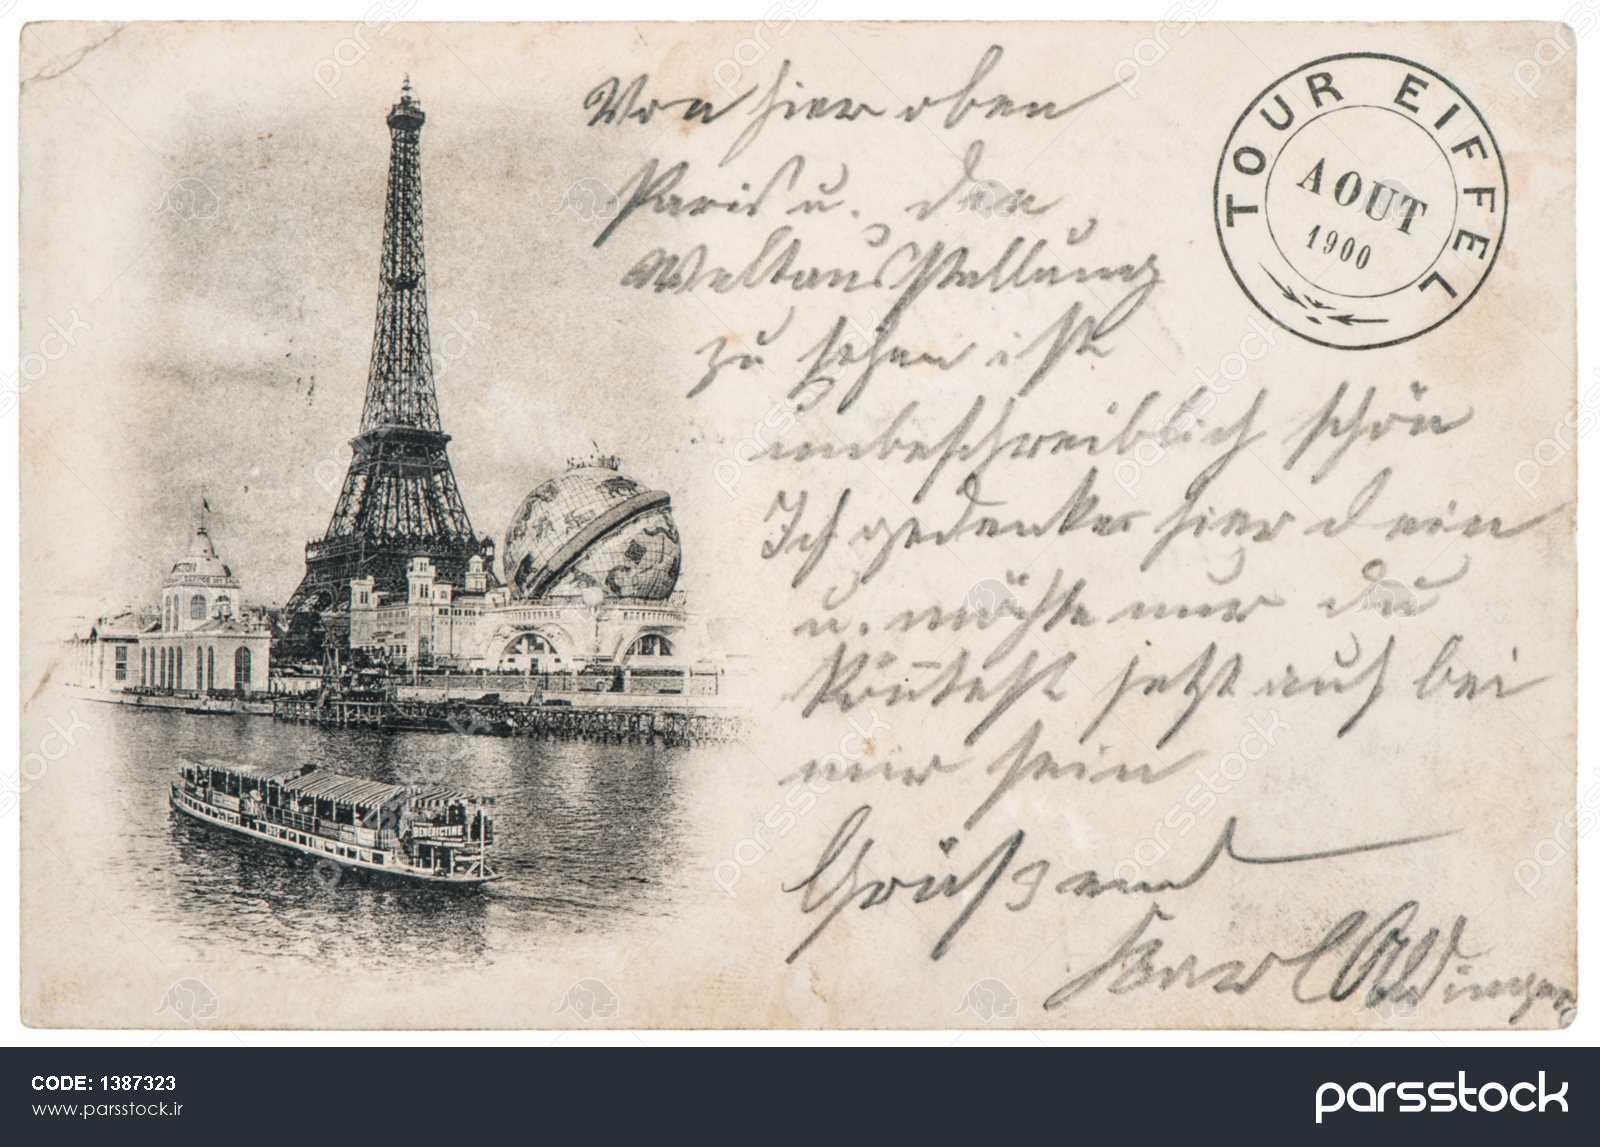 Von hier oben
Paris u. den
Weltausstellung
zu sehen ist
unbeschreiblich schön
Ich gedenke hier dein
u. möchte nur du
könntest jetzt auch bei
mir sein
Grüßend
Karl
TOUR EIFFEL
AOUT
1900
BÉNÉDICTINE
CODE: 1387323
www.parsstock.ir
parsstock